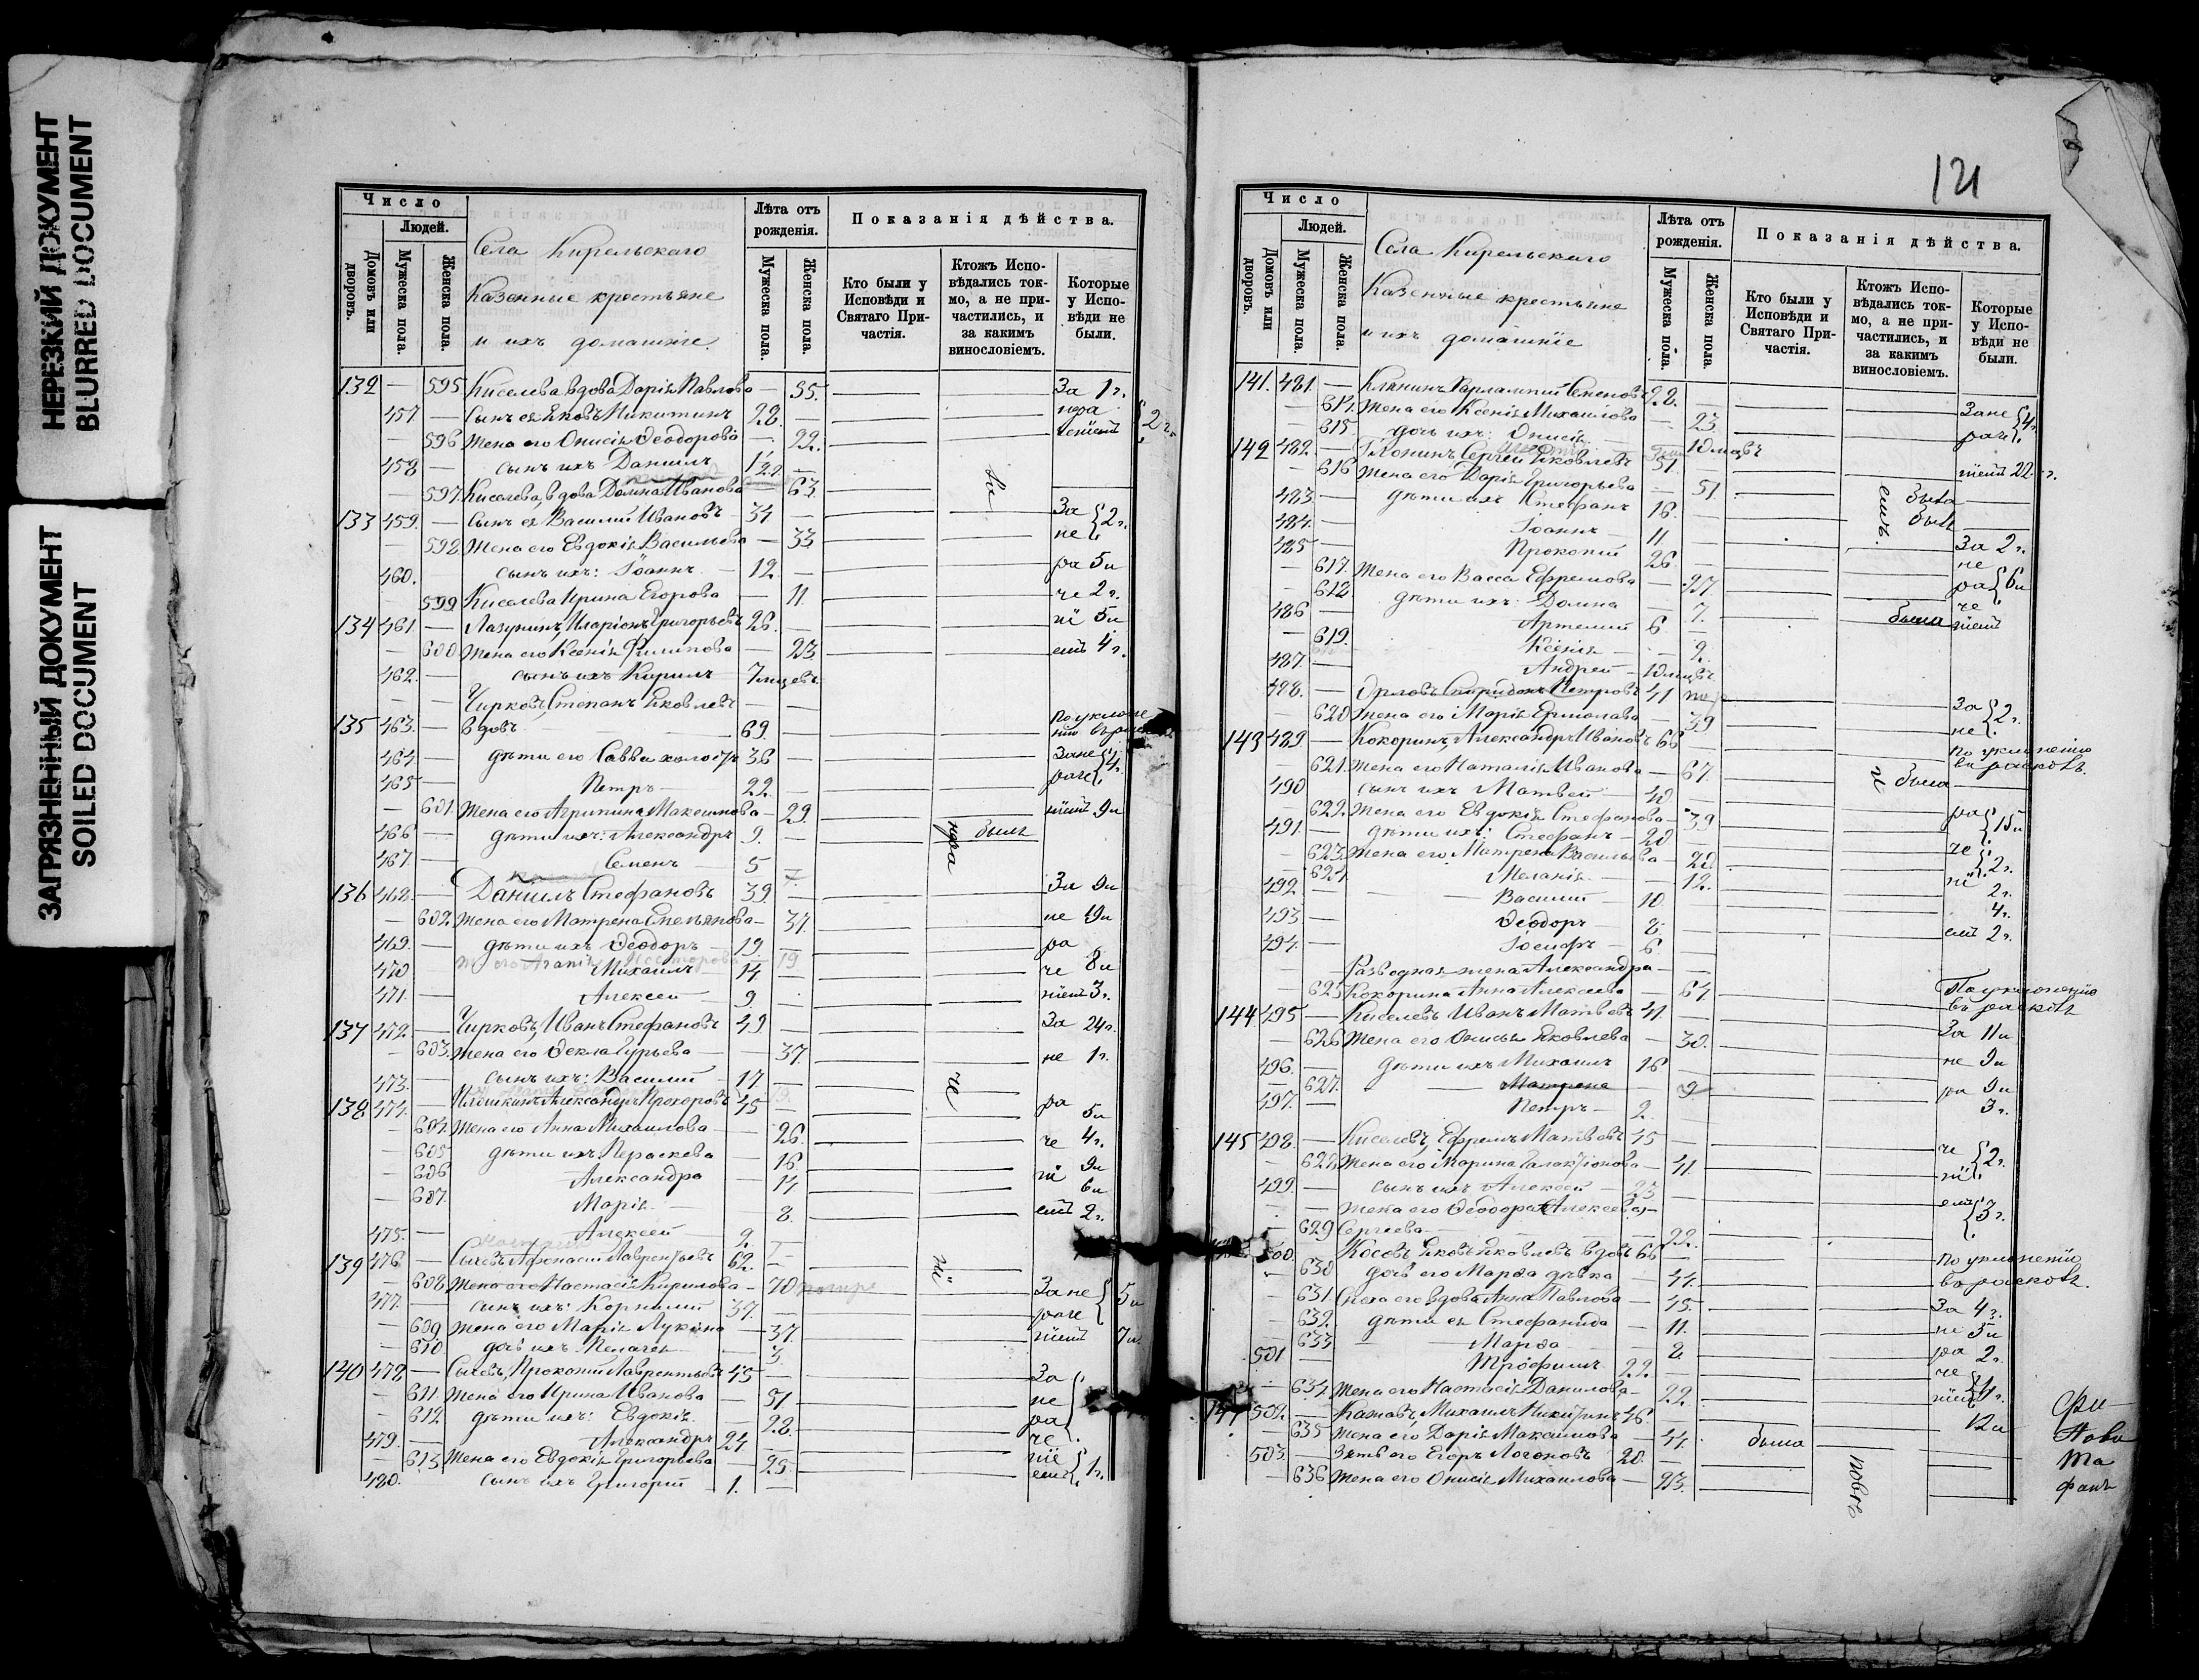 НЕРЕЗКИЙ ДОКУМЕНТ
BLURRED DOCUMENT
ЗАГРЯЗНЕННЫЙ ДОКУМЕНТ
SOILED DOCUMENT
Число
Людей.
Домовъ или дворовъ.
Мужеска пола.
Женска пола.
Села Кирельскаго
Казенные крестьяне
и ихъ домашніе.
Лѣта отъ рожденія.
Мужеска пола.
Женска пола.
Показанія дѣйства.
Кто были у Исповѣди и Святаго Причастія.
Ктожъ Исповѣдались токмо, а не причастились, и за какимъ винословіемъ.
Которые у Исповѣди не были.
132 — 595 Киселева вдова Дарія Павлова — 35. За 1 г.
457 — Сынъ ея Яковъ Никитинъ 22. —
— 596 Жена его Онисія Ѳеодорова — 22. 2 г.
458 — сынъ ихъ Даниилъ
— 597 Киселева, вдова Домна Иванова — 63.
133 459. — Сынъ ея Василій Ивановъ 34 — За 2 г.
— 598 Жена его Евдокія Васильева — 33 не
460. — сынъ ихъ: Іоаннъ 12. — ра 5 и
599 Киселева Ирина Егорова — 11. че 2 г.
134 461 — Лазунинъ, Иларіонъ Григорьевъ 26. — ні 5 и
— 600 Жена его Ксенія Филипова — 23. емъ 4 г.
462. — сынъ ихъ Кирилъ 7 мцевъ.
— — Чирковъ, Степанъ Яковлевъ — —
135 463. — вдовъ 69. —
464 — дѣти его Савва холостъ 36 — Зане 4 г.
465 — Петръ 22. — раче
— 601. Жена его Агрипина Максимова — 29. ніемъ 9 и
466 — дѣти ихъ: Александръ 9. — былъ
467. — Семенъ 5
136 468. — Даніилъ Стефановъ 39. — За 9 и
— 602. Жена его Матрена Емельянова — 37. не 19 и
469. — дѣти ихъ Ѳеодоръ 19. — ра
470 Михаилъ 14 — че 8 и
471. — Алексей 9. ніемъ 3 г.
137 472. — Чирковъ, Иванъ Стефановъ 49 — За 24 г.
— 603. Жена его Ѳекла Гурьева — 37. не 1 г.
473. — сынъ ихъ: Василій 17. —
138 474. — Александръ Прохоровъ 45 — ра
— 604. Жена его Анна Михаилова — 26. 5 и
— 605 дѣти ихъ Пераскева — 16. че 4 г.
— 606 Александра — 14 ні 9 и
— 607. Марія — 8. 6 и
475. — Алексей 2. емъ 2 г.
139 476 — Сычевъ Афонасій Лаврентьевъ 62. —
— 608 Жена его Настасія Кирилова — 70
477. — сынъ ихъ: Корнилій 37. Зане 5 и
— 609. Жена его Марія Лукина — 37. раче
— 610 дочь ихъ Пелагея 3 ніемъ 7 и
140 478 — Сычевъ, Прокопій Лаврентьевъ 45 — За
— 611. Жена его Ирина Иванова — 51. не
— 612 дѣти ихъ: Евдокія — 28. ра
479. — Александръ 24. — че
— 613 Жена его Евдокія Григорьева — 25. ніе 1 г.
480. сынъ ихъ Григорій 1. — емъ
121
Число
Людей.
Домовъ или дворовъ.
Мужеска пола.
Женска пола.
Села Кирельскаго
Казенные крестьяне
и ихъ домашніе
Лѣта отъ рожденія.
Мужеска пола.
Женска пола
Показанія дѣйства.
Кто были у Исповѣди и Святаго Причастія.
Ктожъ Исповѣдались токмо, а не причастились, и за какимъ винословіемъ.
Которые у Исповѣди не были.
141. 481. — Харлампій Семеновъ 22. —
614. Жена его Ксенія Михаилова — 23. Зане 4 г.
— 615 дочь ихъ: Онисія — 10 мцевъ раче
142 482. — Сергей Яковлевъ 51. ніемъ 22. г.
— 616 Жена его Дарія Григорьева — 51.
483 — дѣти ихъ Стефанъ 16. — была
484. — Іоаннъ 11. — былъ
485 — Прокопій 26 — За 2 г.
— 617. Жена его Васса Ефремова — 27. не
618 дѣти ихъ: Домна — 7. ра 6 и
486 — Артемій 6. — че
— 619. Ксенія — 2. была ніемъ
487. — Андрей — 10 мцевъ
488. — Орловъ Спиридонъ Петровъ 41
— 620 Жена его Марія Ермолаева — 39 За 2 г.
143 489. — Кокоринъ, Александръ Ивановъ 66 не
— 621. Жена его Наталія Иванова — 67. По уклоненію въ расколъ.
490 сынъ ихъ Матвей 40 — была
— 622. Жена его Евдокія Стефанова — 39 ра 15 и
491. — дѣти ихъ: Стефанъ 20 —
— 623. Жена его Матрена Васильева — 20. че 2 г.
— 624 Меланія — 12. ні
492. — Василій 10. 2 г.
493. — Ѳеодоръ 8. 4 г.
494. — Іосифъ 6. емъ 2 г.
— — Разводная жена Александра — —
— 625 Кокорина Анна Алексеева — 61. По уклоненію въ расколъ
144 495 — Киселевъ Иванъ Матвеевъ 41 —
— 626 Жена его Онисья Яковлева — 30. За 11 и
496. — дѣти ихъ Михаилъ 16 не 9 и
— 627. Матрена — 9 ра 9 и
497. — Петръ 2. 3 г.
145 498. — Киселевъ, Ефремъ Матвеевъ 45 —
— 628. Жена его Марина Галактіонова — 41. че 2 г.
499. — сынъ ихъ Алексей 23 ні
— — Жена его Ѳеодора Алексеева — емъ 3 г.
— 629 Сергеева 22.
500. Косовъ Яковъ Яковлевъ вдовъ 66 —
— 630 дочь его Марѳа дѣвка — 44. По уклоненію въ расколъ.
— 631 Сноха его вдова Анна Павлова — 45. За 4 г.
— 632. дѣти ея Стефанида — 11. не 5 и
— 633 Марѳа — 8 ра 2 г.
501 — Трофимъ 22. — че
— 634. Жена его Настасія Данилова — 22. ніемъ
147 502. — Михаилъ Никитинъ 46. — 12 и
— 635 Жена его Дарія Максимова — 44. была
503. — Зять его Егоръ Логоновъ 20. —
— 636 Жена его Онисія Михаилова — 23.